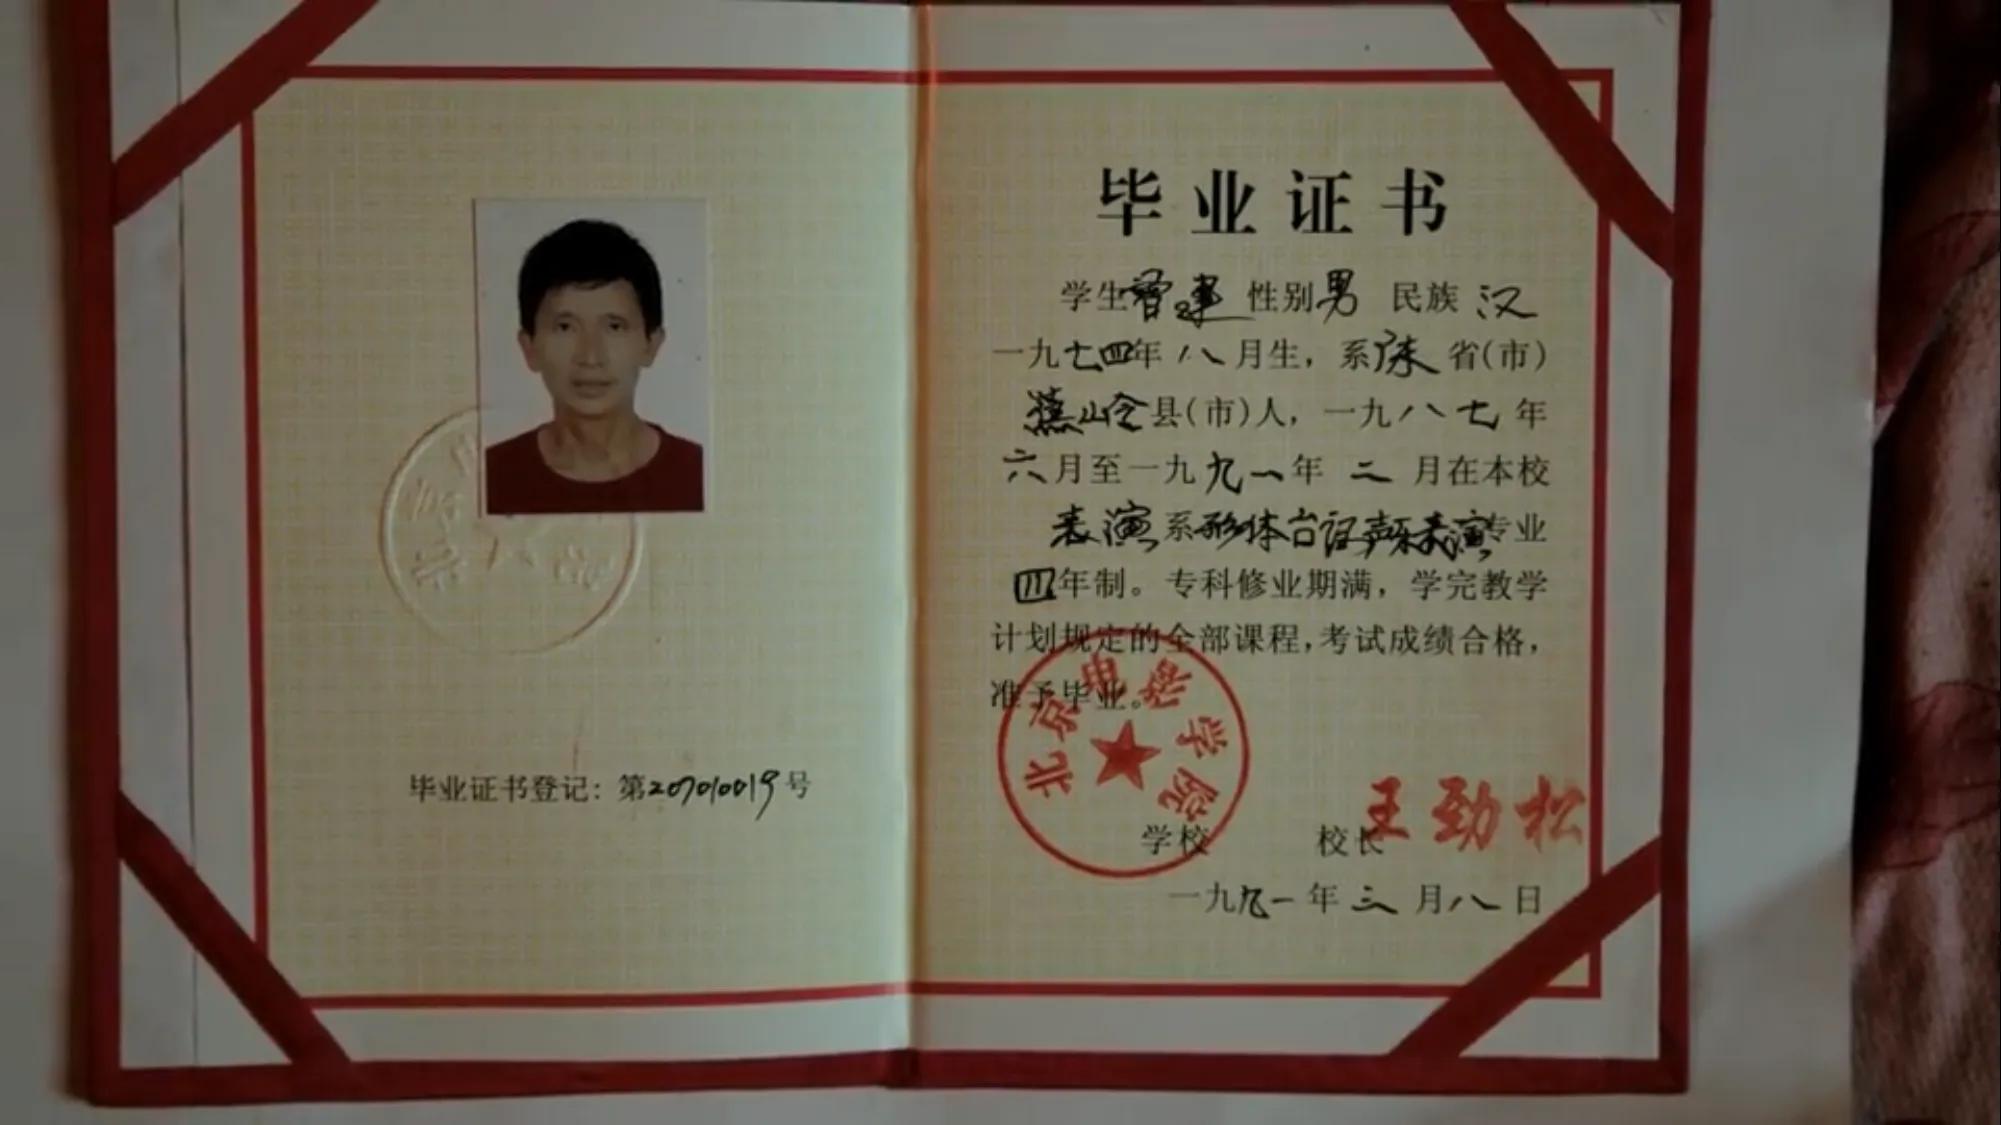 毕业证书登记：第207010019号
毕业证书
学生曾建 性别男 民族汉
一九七四年八月生，系广东省(市)
蕉岭县(市)人，一九八七年
六月至一九九一年二月在本校
表演系形体台词声乐表演专业
四年制。专科修业期满，学完教学
计划规定的全部课程，考试成绩合格，
准予毕业。
北京电影学院
学校 校长王劲松
一九九一年三月八日